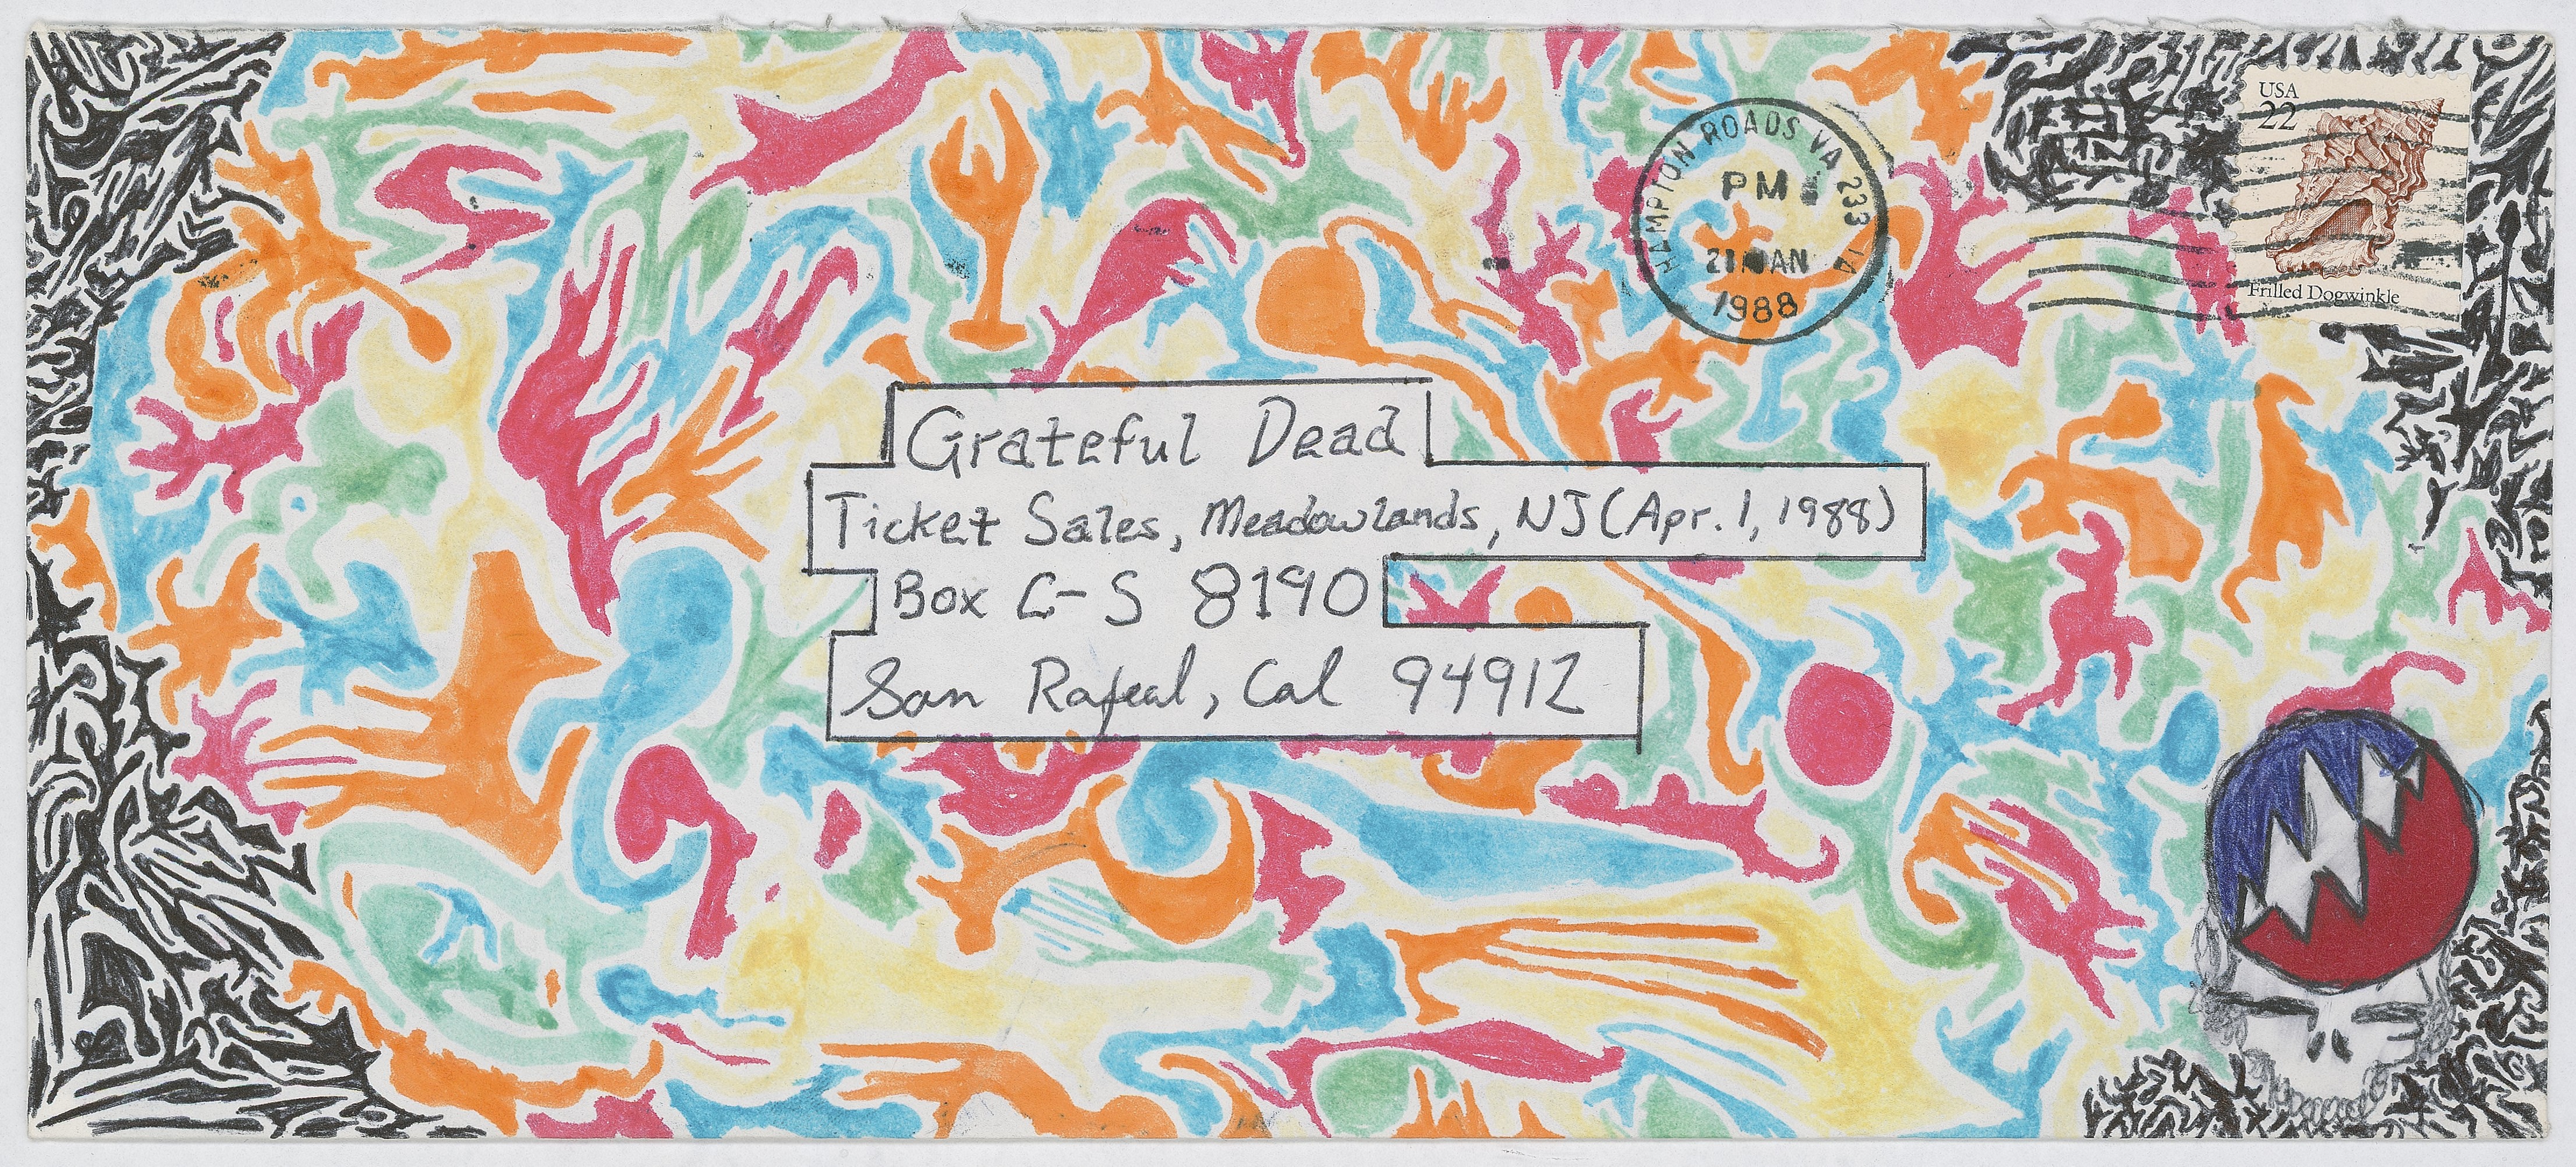 USA
22
Frilled Dogwinkle
HAMPTON ROADS VA 233
PM
1988
Grateful Dead
Ticket Sales, Meadowlands, NJ (Apr. 1, 1988)
Box C-S 8190
San Rafeal, Cal 94912